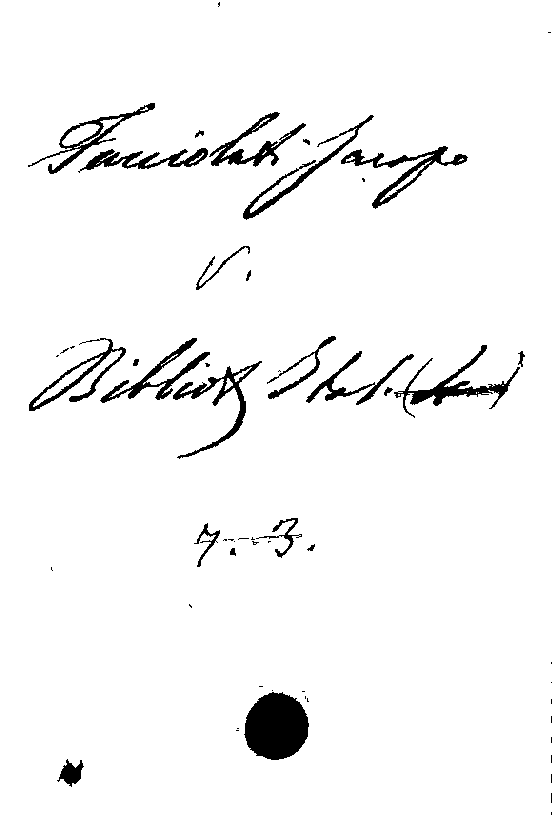 Facciolati Jacopo
v.
Bibliot. Ital.
7. 3.